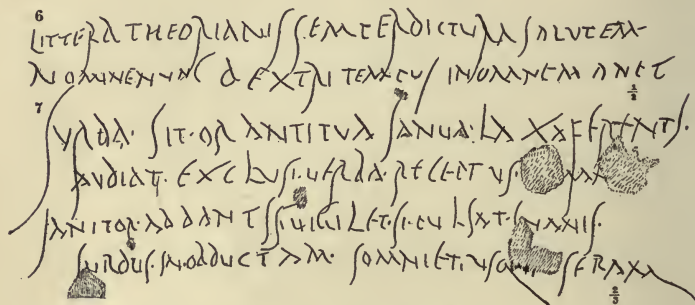 6
LITTERA THEORIANIS SEMPER DICTVRA SALVTEM
NOMINE NVNC DEXTRI TEMPVS IN OMNEM MANET
1/2
7
SVRDA· SIT· ORANTI TVA IANVA· LAXA FERENTI·
AVDIAT· EXCLVSI· VERBA· RECEPTVS·
IANITOR· AD DANTIS VIGILET· SI PVLSAT· INANIS·
SVRDVS· IN OBDVCTAM· SOMNIET· SERAM
2/3